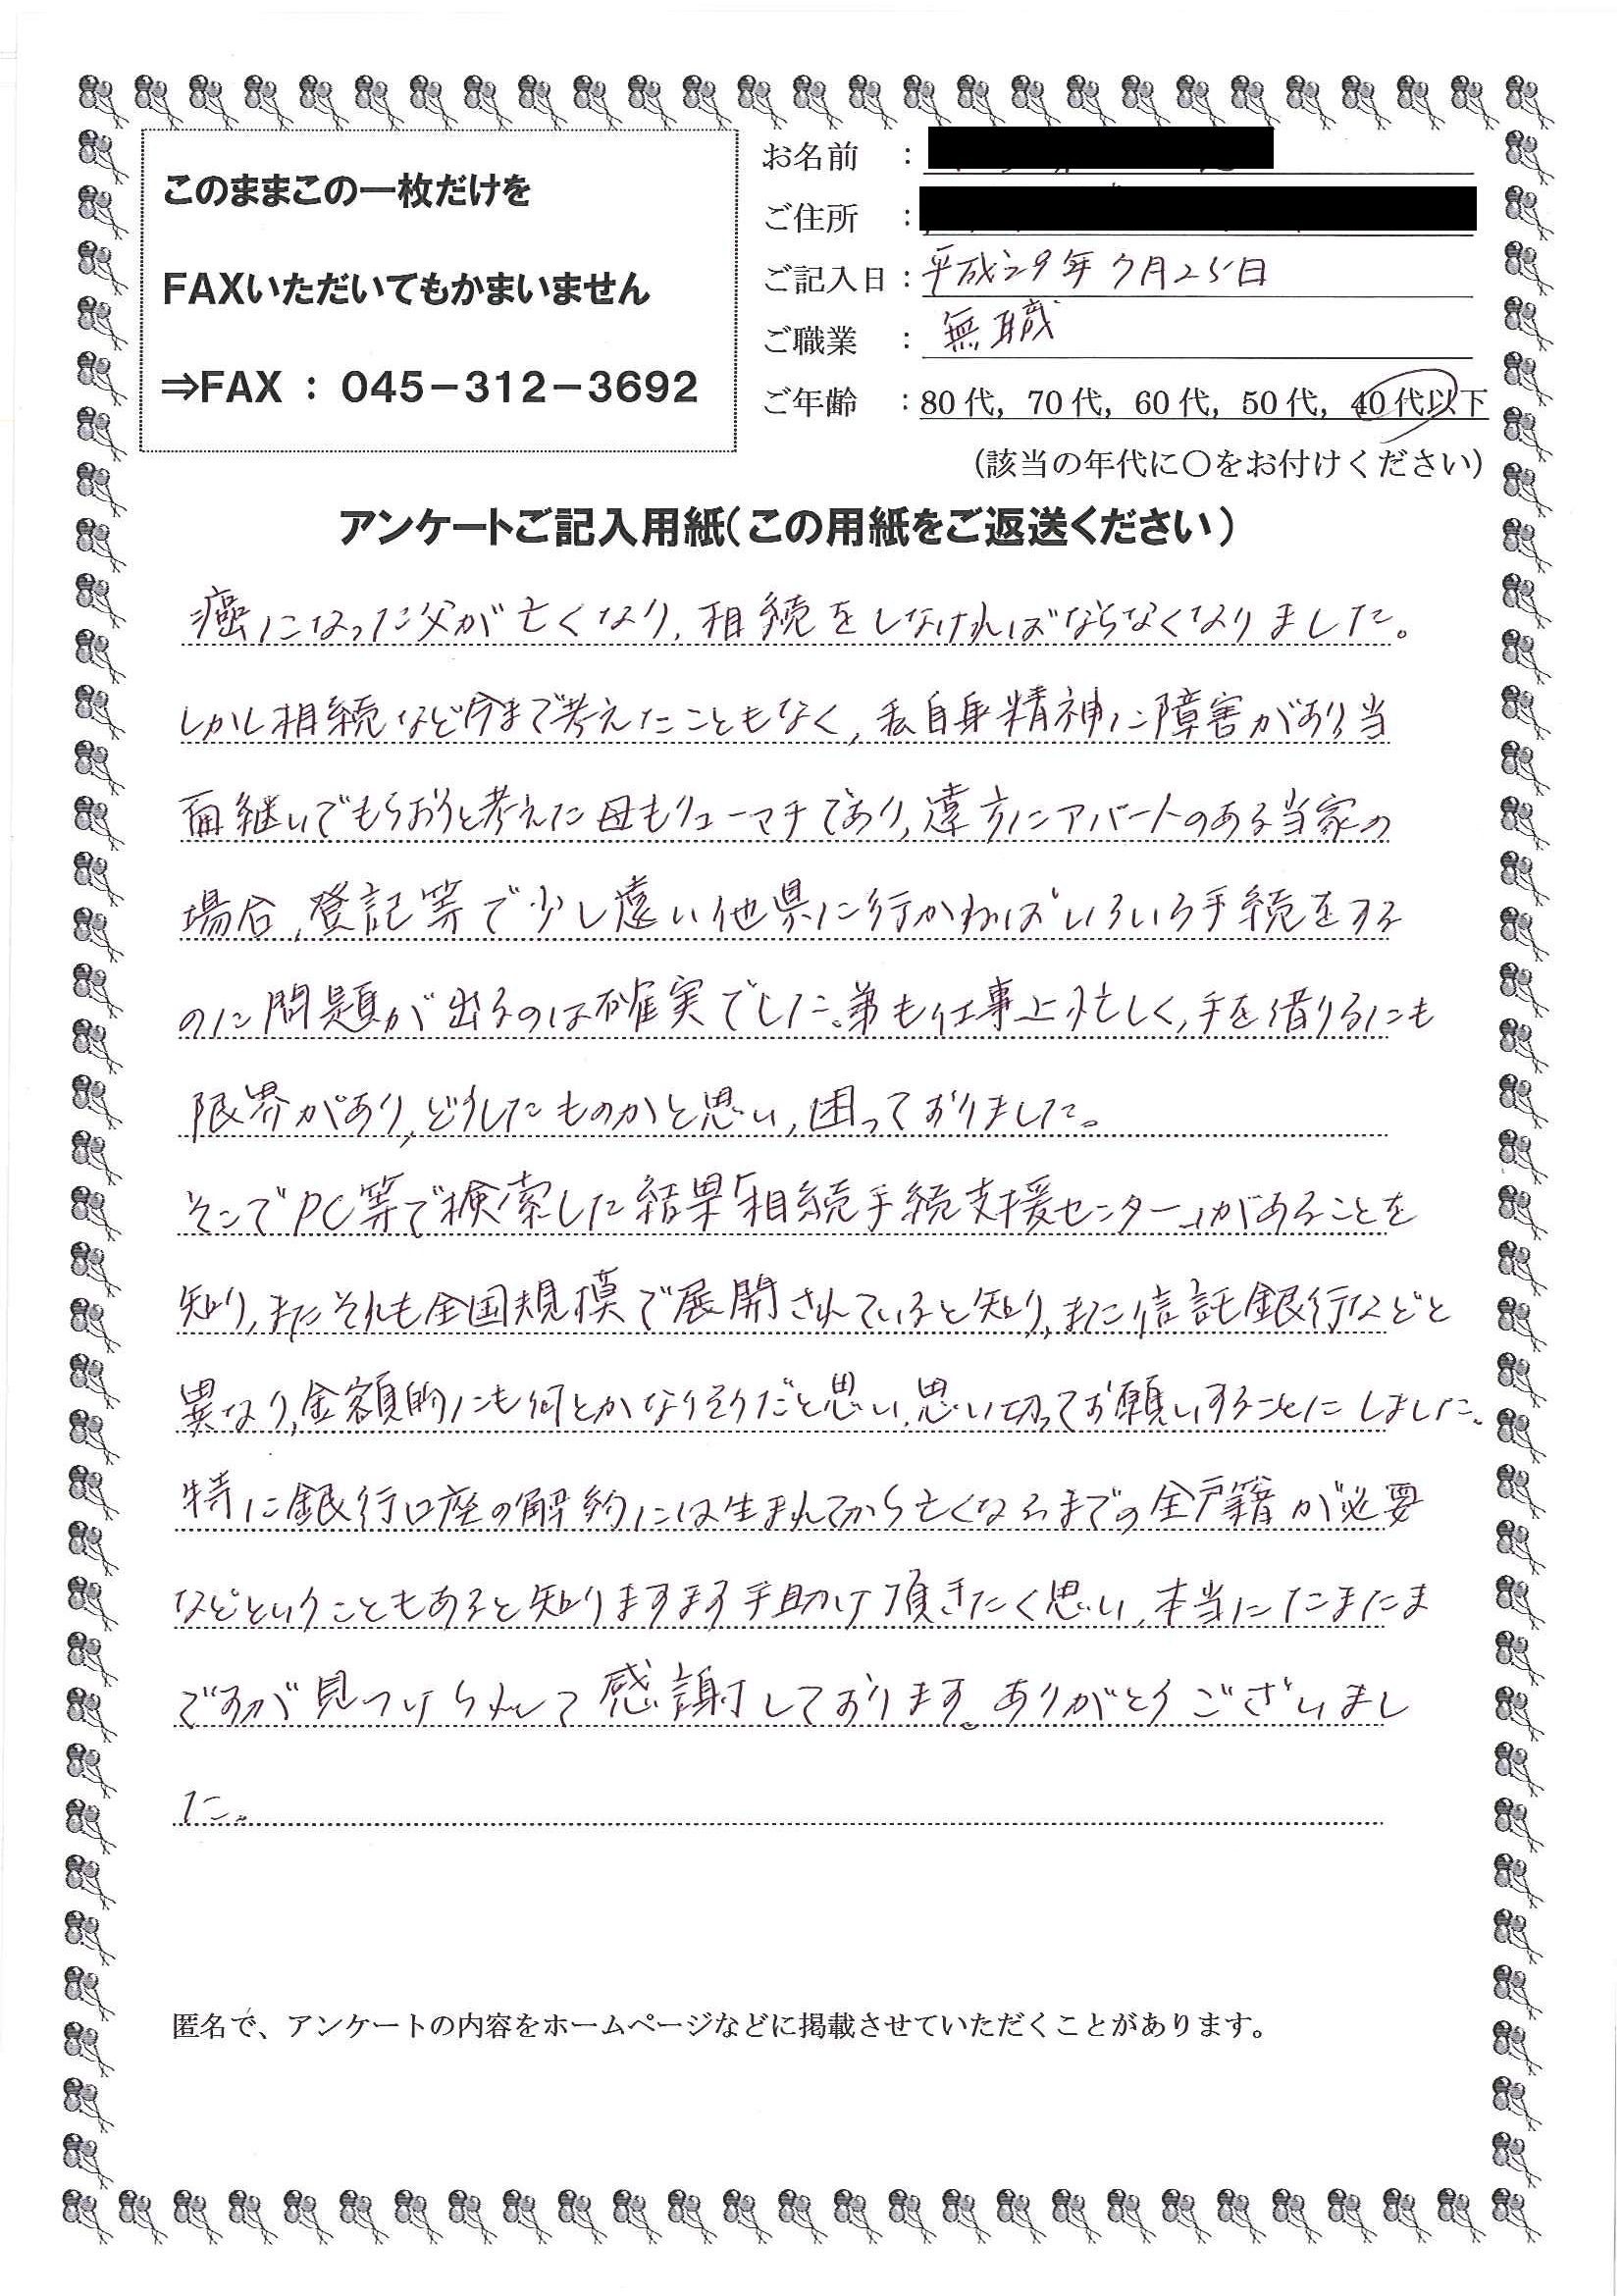 このままこの一枚だけを
FAXいただいてもかまいません
⇒FAX : 045-312-3692
お名前 :
ご住所 :
ご記入日 : 平成29年7月25日
ご職業 : 無職
ご年齢 : 80代, 70代, 60代, 50代, 40代以下
(該当の年代に○をお付けください)
アンケートご記入用紙(この用紙をご返送ください)
癌になった父が亡くなり、相続をしなければならなくなりました。
しかし相続など今まで考えたこともなく、私自身精神に障害があり当
面継いでもらおうと考えた母もリューマチであり、遠方にアパートのある当家の
場合、登記等で少し遠い他県に行かねばいろいろ手続をする
のに問題が出るのは確実でした。弟も仕事上忙しく、手を借りるにも
限界があり、どうしたものかと思い、困っておりました。
そこでPC等で検索した結果「相続手続支援センター」があることを
知り、またそれも全国規模で展開されていると知り、また信託銀行などと
異なり、金額的にも何とかなりそうだと思い、思い切ってお願いすることにしました。
特に銀行口座の解約には生まれてから亡くなるまでの全戸籍が必要
などということもあると知りますます手助け頂きたく思い、本当にたまたま
ですが見つけられて感謝しております。ありがとうございまし
た。
匿名で、アンケートの内容をホームページなどに掲載させていただくことがあります。